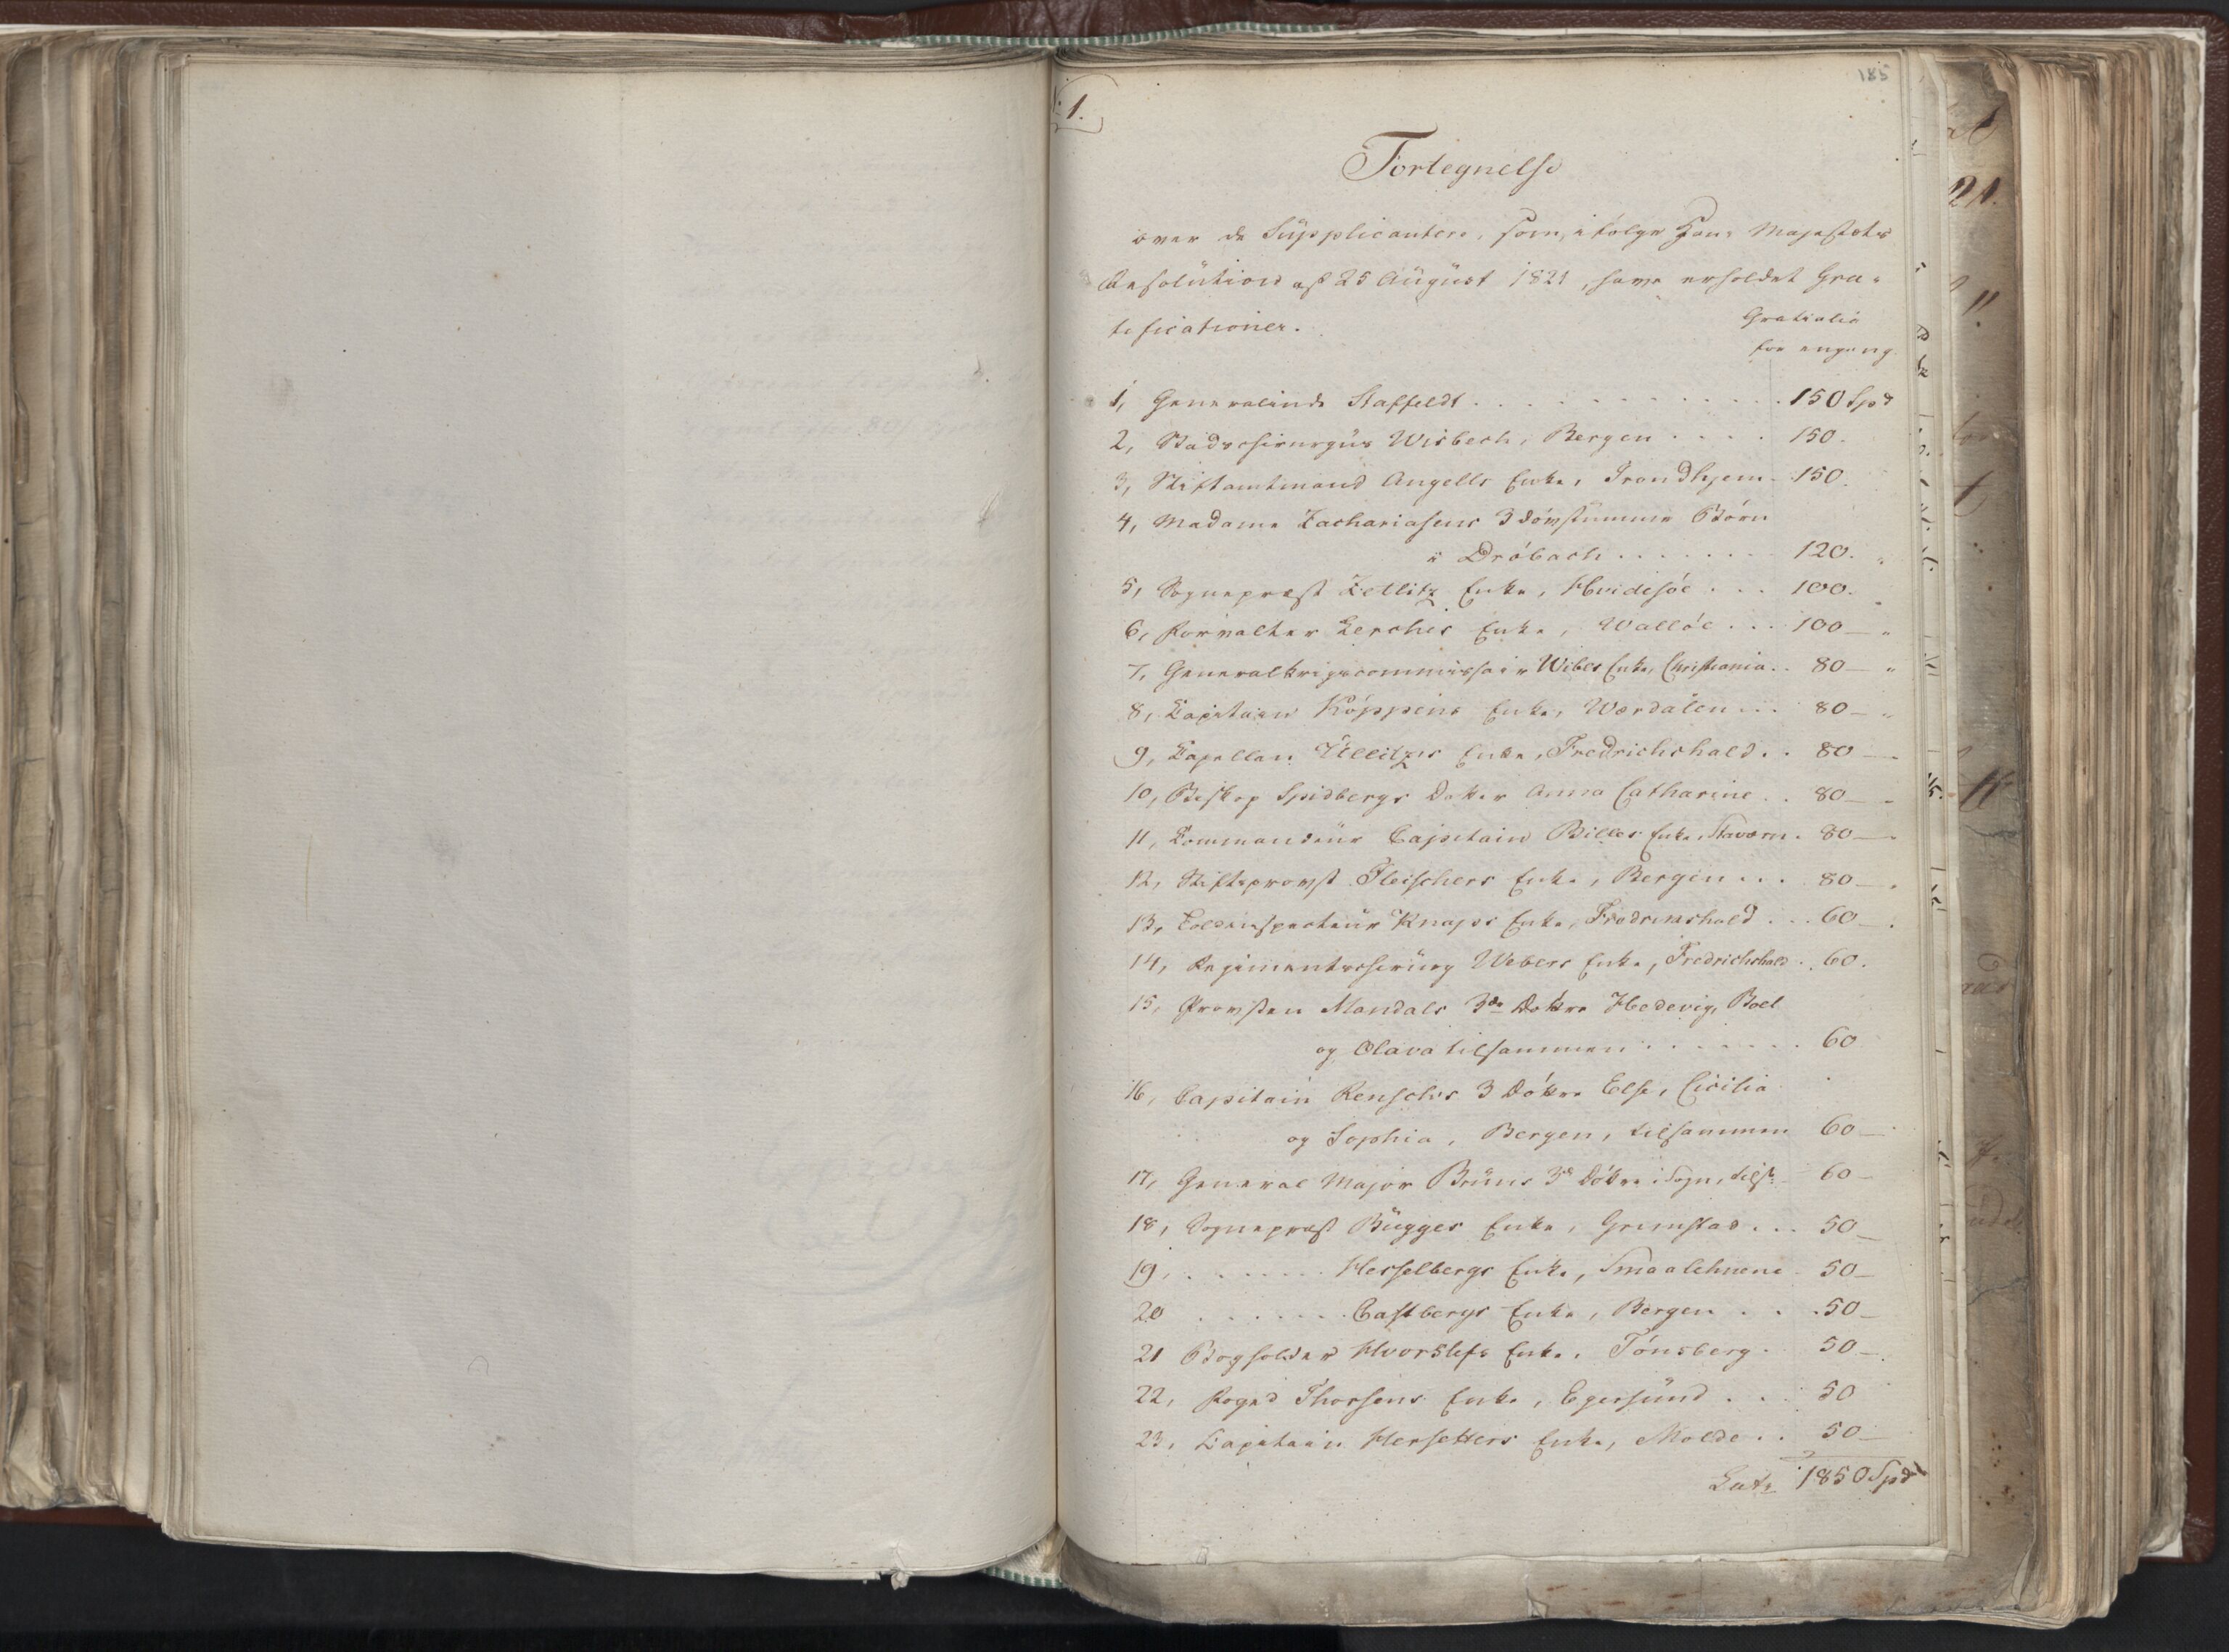 185
1.
Fortegnelse
over de Supplicantere, som, ifølge Hans Majestæts
Resolution af 25 August 1821, have erholdet Gra-
tificationer.
Gratialia
for engang.
1, Generalinde Staffeldt . . . 150 Spd
2, Stadschirurgus Wisbech, Bergen . . . 150.
3, Stiftamtmand Angells Enke, Trondhjem . 150.
4, Madame Zachariasens 3 døvstumme Børn
i Drøbach . . . 120. "
5, Sognepræst Zetlitz Enke, Hvidesøe . . . 100. "
6, Forvalter Lerches Enke, Walløe . . . 100 — "
7, Generalkrigscommissair Wibes Enke, Christiania . . 80 — "
8, Capitain Køppens Enke, Værdalen . . . 80 — "
9, Capellan Ullitzes Enke, Fredrichshald . . 80 —
10, Biskop Spidbergs Datter Anna Catharine . . 80 — "
11, Commandeur Capitain Billes Enke, Staværn . 80 —
12, Stiftsprovst Fleischers Enke, Bergen . . . 80 —
13, Toldinspecteur Knaps Enke, Fredrikshald . . . 60 —
14, Regimentschirurg Webers Enke, Fredrichshald . . 60.
15, Provsten Mandals 3de Døttre Hedevig, Boel
og Olava tilsammen . . . 60
16, Capitain Renschs 3 Døttre Else, Cicilia
og Sophia, Bergen, tilsammen 60 —
17, General Major Bruns 3de Døttre i Sogn, tils: 60 —
18, Sognepræst Bugges Enke, Grimstad . . . 50 —
19, . . . Hesselbergs Enke, Smaalehnene 50 —
20 . . . Castbergs Enke, Bergen . . . 50 —
21 Bogholder Hvorslefs Enke, Tønsberg . 50 —
22, Foged Thorsens Enke, Egersund . . . 50
23, Capitain Hersetters Enke, Molde . . 50 —
Lats 1850 Spd